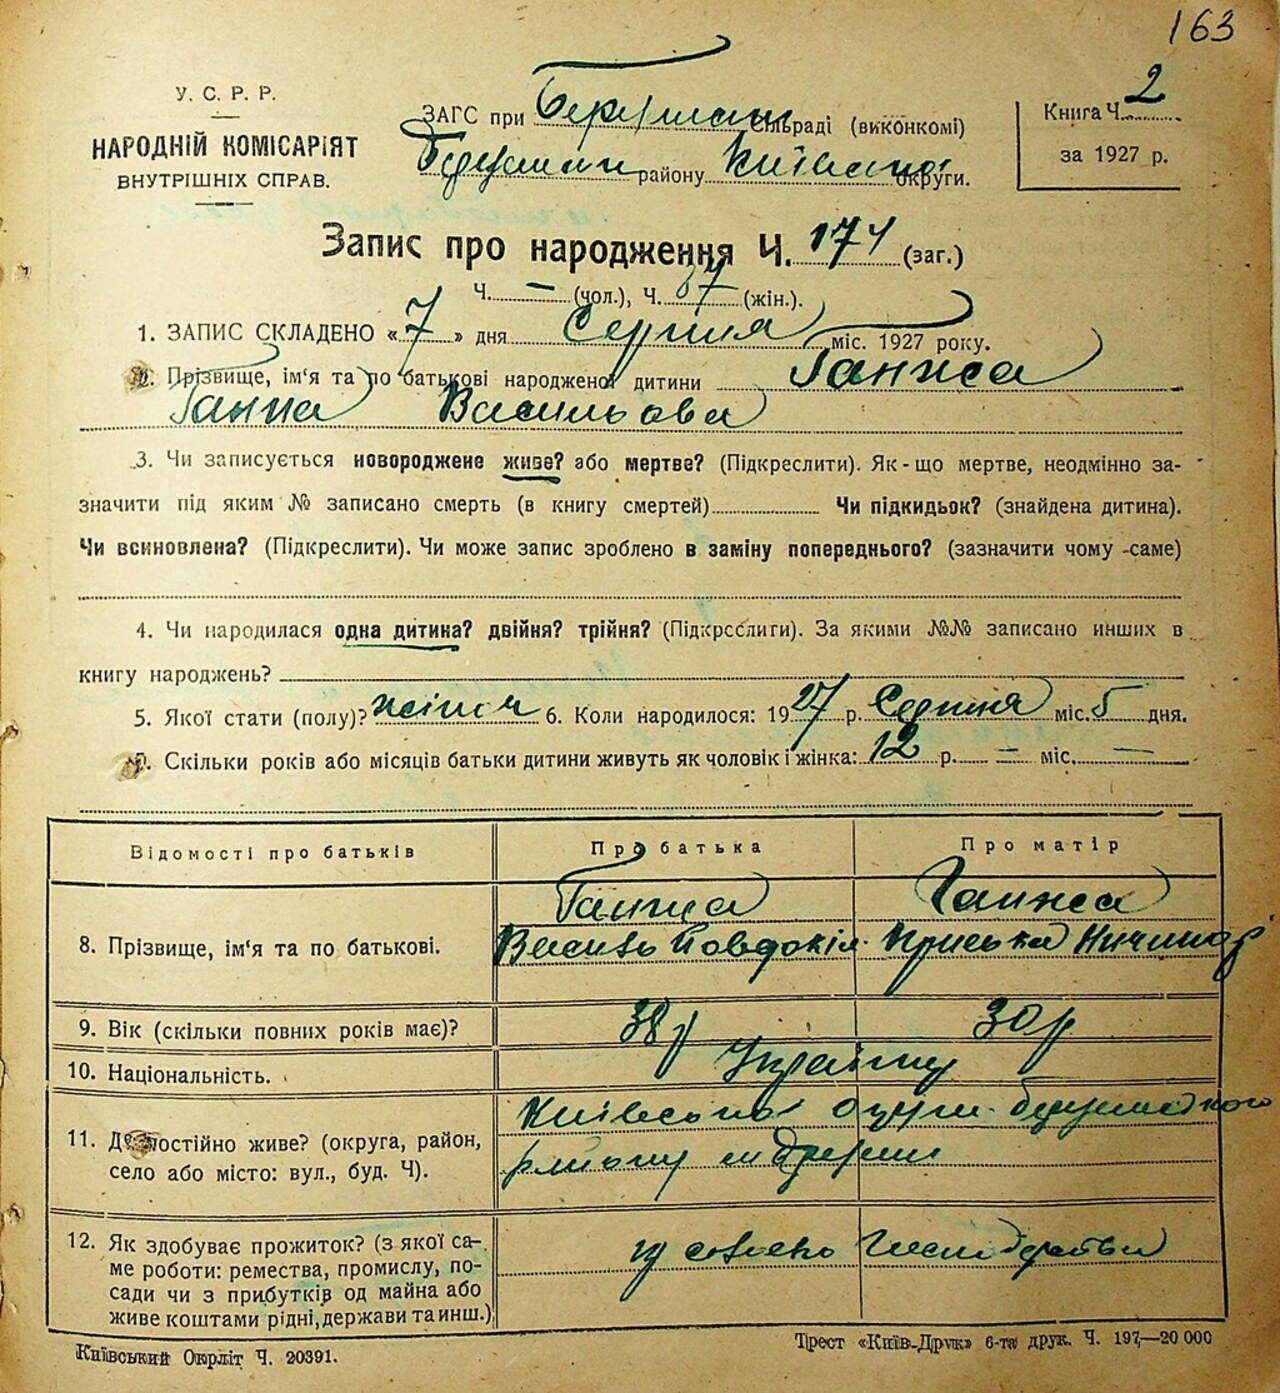 163
У. С. Р. Р.
НАРОДНІЙ КОМІСАРІЯТ
ВНУТРІШНІХ СПРАВ.
ЗАГС при сільраді (виконкомі)
району округи.
Книга Ч. 2
за 1927 р.
Запис про народження Ч. 174 (заг.)
Ч. — (чол.), Ч. 87 (жін.).
1. ЗАПИС СКЛАДЕНО «7» дня Серпня міс. 1927 року.
2. Прізвище, ім'я та по батькові народженої дитини Ганжа
Ганна Васильова
3. Чи записується новороджене живе? або мертве? (Підкреслити). Як-що мертве, неодмінно за-
значити під яким № записано смерть (в книгу смертей) Чи підкидьок? (знайдена дитина).
Чи всиновлена? (Підкреслити). Чи може запис зроблено в заміну попереднього? (зазначити чому-саме)
4. Чи народилася одна дитина? двійня? трійня? (Підкреслити). За якими №№ записано инших в
книгу народжень?
5. Якої стати (полу)? жіноч 6. Коли народилося: 1927 р. Серпня міс. 5 дня.
7. Скільки років або місяців батьки дитини живуть як чоловік і жінка: 12 р. — міс. —
Відомості про батьків Про батька Про матір
8. Прізвище, ім'я та по батькові. Ганжа Ганжа
Василь Йовдокім Приська
9. Вік (скільки повних років має)? 38 р 30 р
10. Національність. Українц
11. Де постійно живе? (округа, район,
село або місто: вул., буд. Ч).
Київсько округи
району
12. Як здобуває прожиток? (з якої са-
ме роботи: ремества, промислу, по-
сади чи з прибутків од майна або
живе коштами рідні, держави та инш.)
Київський Окрліт Ч. 20391.
Трест «Київ-Друк» 6-та друк. Ч. 197—20 000